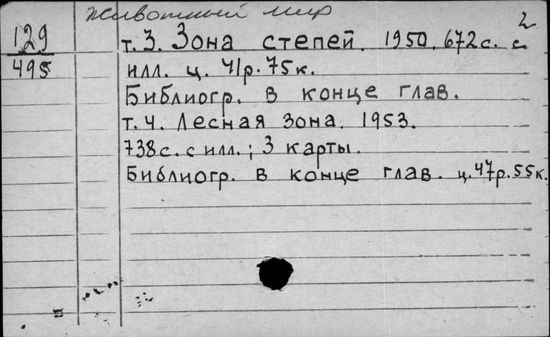 Животный мир
2
129
495
т. 3. Зона степей. 1950. 672с. с
илл. ц. 41р. 75к.
Библиогр. в конце глав.
т. 4. Лесная зона. 1953.
738с. с илл.; 3 карты.
Библиогр. в конце глав. ц. 47р. 55к.